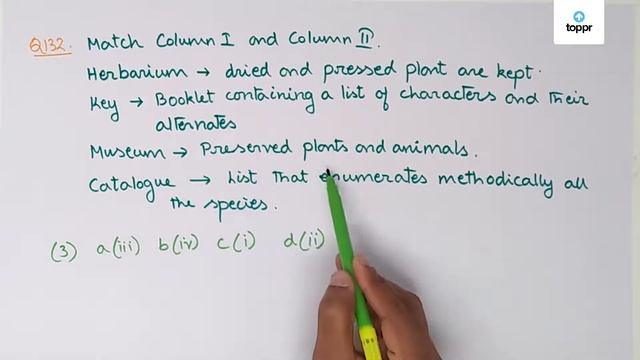 toppr
Q132. Match Column I and Column II.
Herbarium → dried and pressed plant are kept.
Key → Booklet containing a list of characters and their
alternates
Museum → Preserved plants and animals.
Catalogue → List that enumerates methodically all
the species.
(3) a(iii) b(iv) c(i) d(ii)